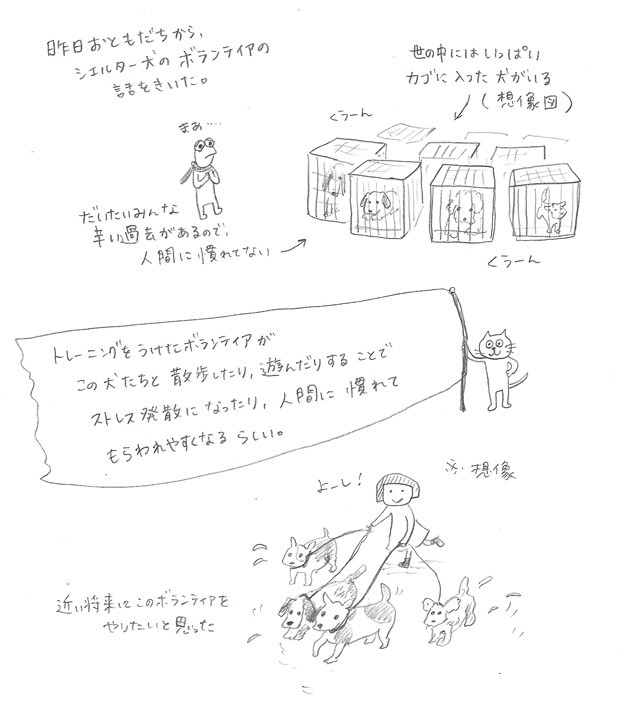 昨日おともだちから、
シェルター犬の ボランティアの
話をきいた。
世の中にはいっぱい
カゴに入った犬がいる
(想像図)
くぅーん
まあ‥‥
だいたいみんな
辛い過去があるので、
人間に慣れてない
くぅーん
トレーニングをうけたボランティアが
この犬たちと散歩したり、遊んだりすることで
ストレス発散になったり、人間に慣れて
もらわれやすくなるらしい。
よーし!
※想像
近い将来にこのボランティアを
やりたいと思った